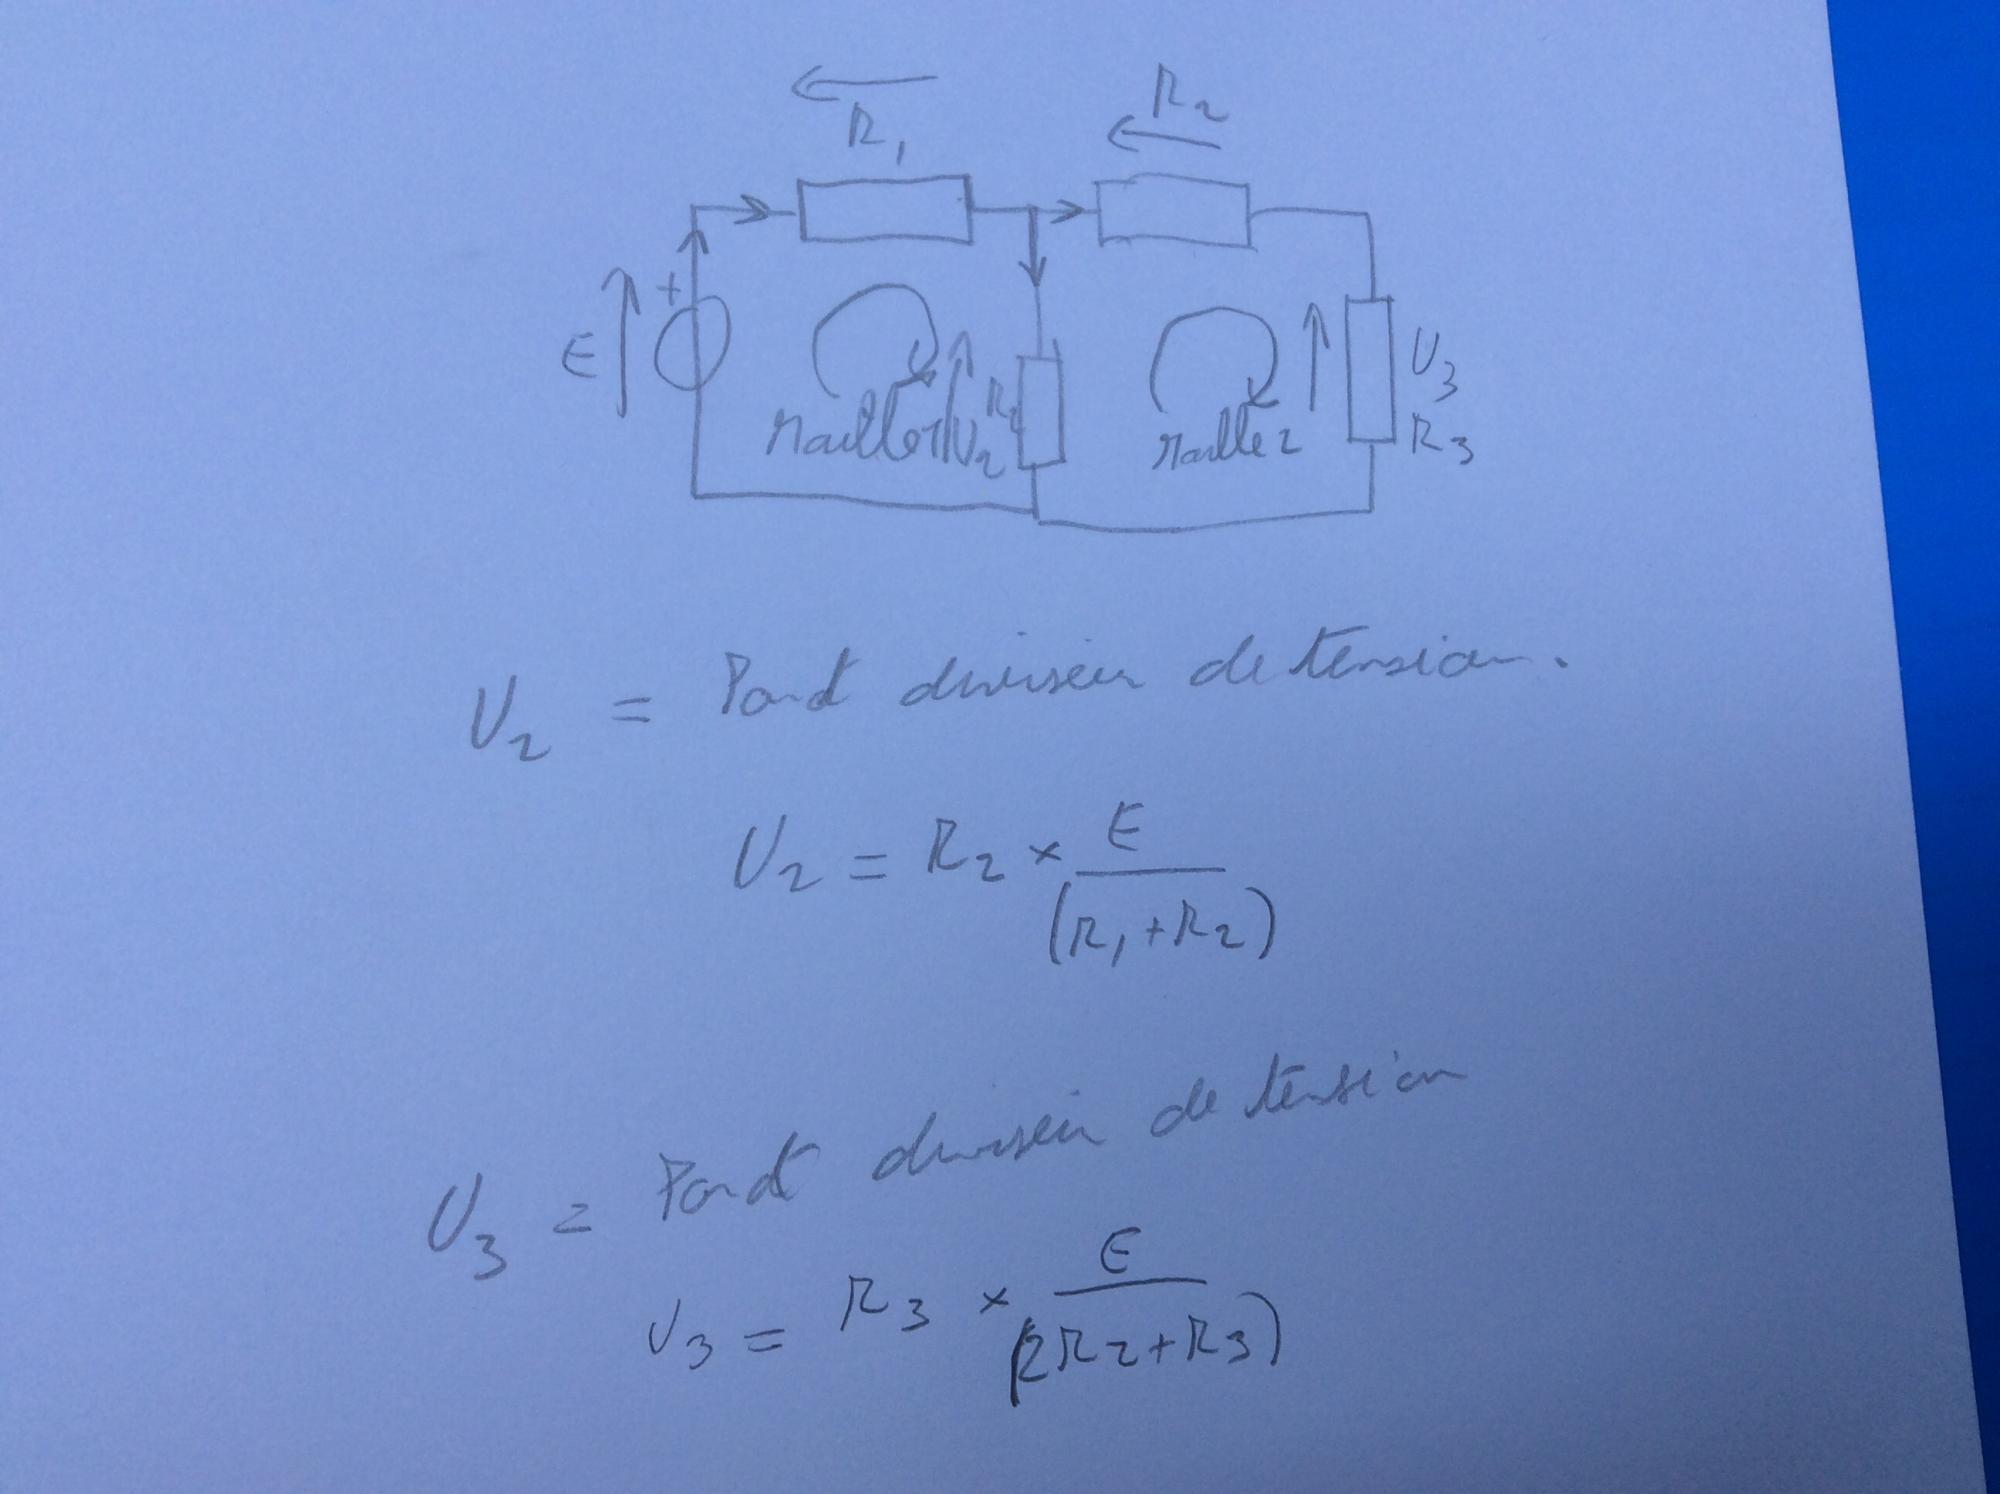 R1
R2
E
+
U3
Maille 1
U2
R2
Maille 2
R3
U2 = Pont diviseur de tension.
U2 = R2 × E
(R1+R2)
U3 = Pont diviseur de tension
U3 = R3 × E
(2R2+R3)